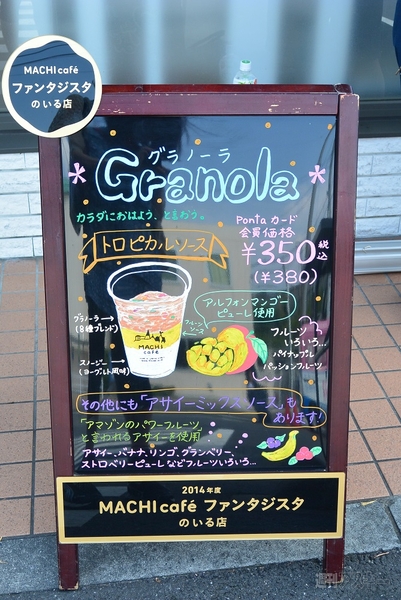 MACHI café
ファンタジスタ
のいる店
グラノーラ
Granola
カラダにおはよう、と言おう。
Ponta カード
会員価格
¥350 税込
(¥380)
トロピカルソース
アルフォンマンゴー
ピューレ使用
フルーツソース
グラノーラ→
(8種ブレンド)
MACHI
café
スムージー→
(ヨーグルト風味)
フルーツ
いろいろ...
パイナップル
パッションフルーツ
その他にも「アサイーミックスソース」も
あります!
「アマゾンのパワーフルーツ」
と言われるアサイーを使用
アサイー、バナナ、リンゴ、クランベリー、
ストロベリーピューレなどフルーツいろいろ...
2014年度
MACHI café ファンタジスタ
のいる店